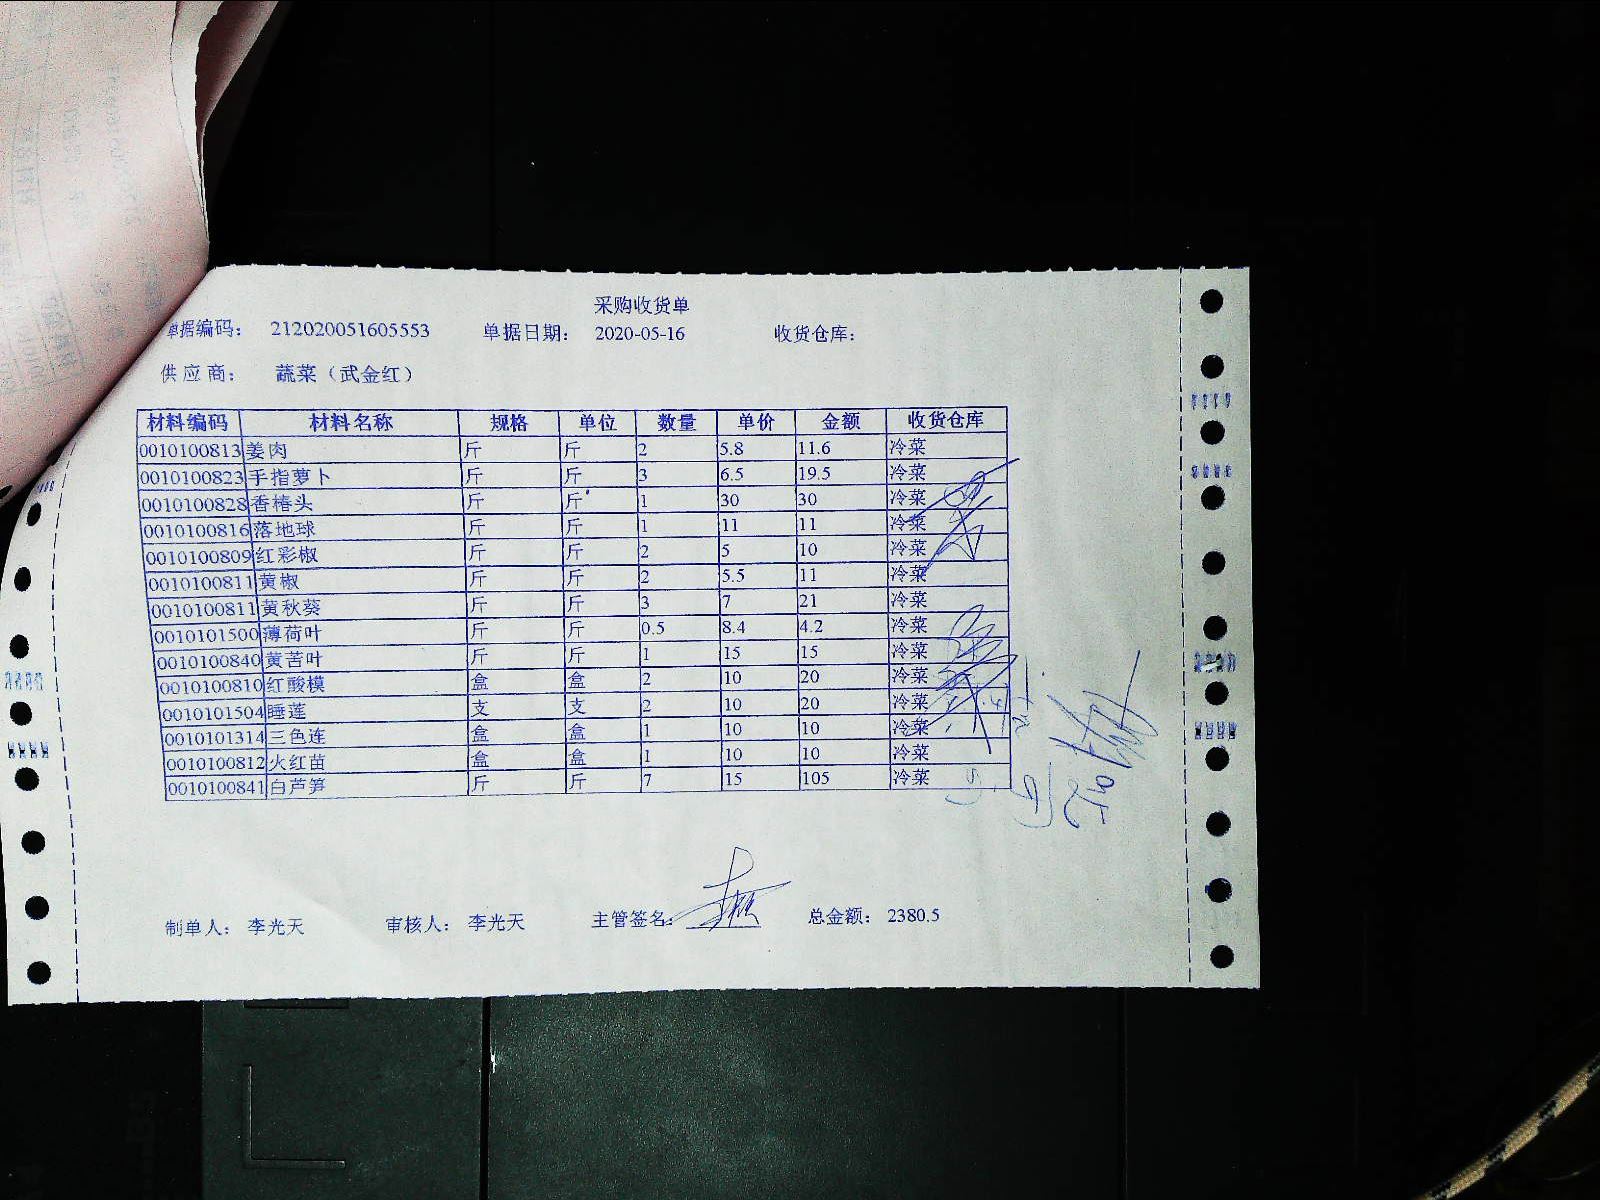 采购收货单
单据编码： 212020051605553 单据日期： 2020-05-16 收货仓库：
供应商： 蔬菜（武金红）
材料编码 材料名称 规格 单位 数量 单价 金额 收货仓库
0010100813 姜肉 斤 斤 2 5.8 11.6 冷菜
0010100823 手指萝卜 斤 斤 3 6.5 19.5 冷菜
0010100828 香椿头 斤 斤 1 30 30 冷菜
0010100816 落地球 斤 斤 1 11 11 冷菜
0010100809 红彩椒 斤 斤 2 5 10 冷菜
0010100811 黄椒 斤 斤 2 5.5 11 冷菜
0010100811 黄秋葵 斤 斤 3 7 21 冷菜
0010101500 薄荷叶 斤 斤 0.5 8.4 4.2 冷菜
0010100840 黄苦叶 斤 斤 1 15 15 冷菜
0010100810 红酸模 盒 盒 2 10 20 冷菜
0010101504 睡莲 支 支 2 10 20 冷菜
0010101314 三色连 盒 盒 1 10 10 冷菜
0010100812 火红苗 盒 盒 1 10 10 冷菜
0010100841 白芦笋 斤 斤 7 15 105 冷菜
制单人： 李光天 审核人： 李光天 主管签名： 总金额： 2380.5